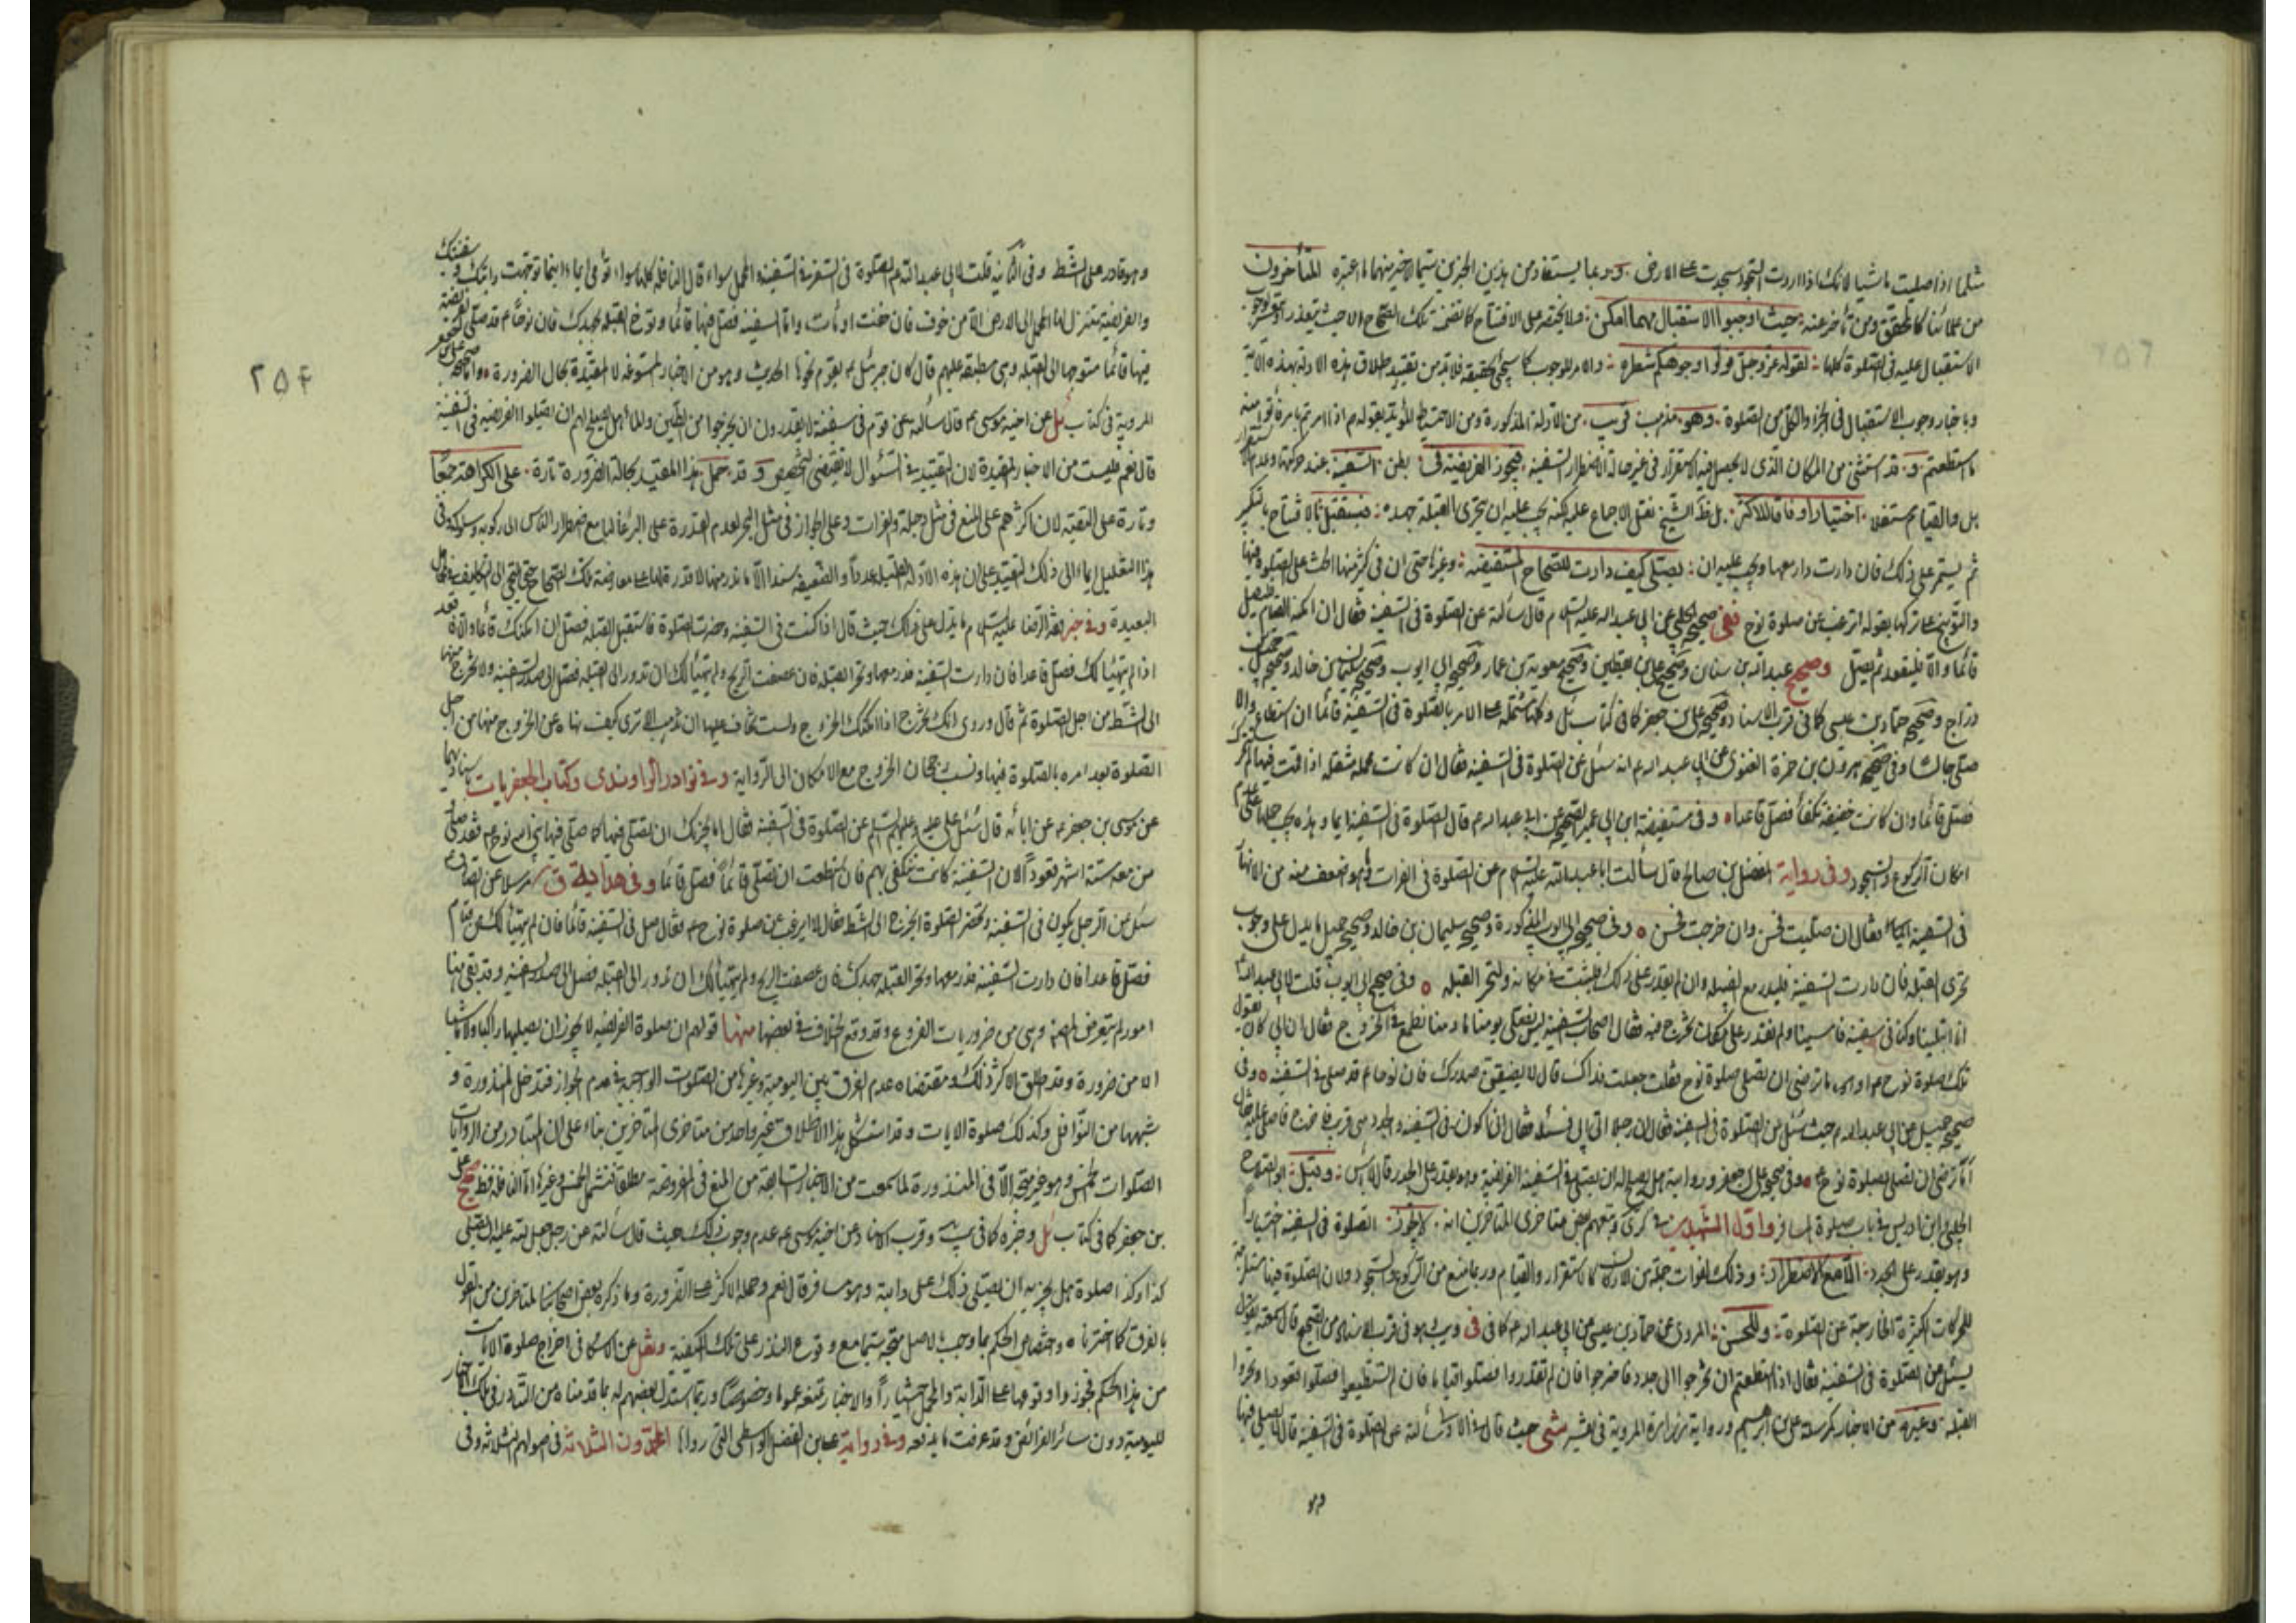 مثلها اذا صليت ماشيا لانك اذا اردت السجود سجدت على الارض و ربما يستفاد من هذين الخبرين سيما الاخير منهما ما اعتبره المتأخرون
من علمائنا كالمحقق ومن تأخر عنه حيث اوجبوا الاستقبال مهما امكن فلا يختص على الافتتاح كما تضمنته تلك الصحاح الا حيث يتعذر
الاستقبال عليه في الصلوة كلها لقوله عز وجل فولوا وجوهكم شطره والامر للوجوب كما سيجئ تحقيقه فلا بد من تقييد اطلاق هذه الادلة بهذه الاية
وباخبار وجوب الاستقبال في الجزء والكل من الصلوة وهو مذهب قريب من الادلة المذكورة ومن الاحتياط المؤيد بقوله م اذا امرتم بامر فأتوا منه
ما استطعتم و قد استثنى من المكان الذي لا يحصل فيه الاستقرار في غير حالة الاضطرار السفينة فيجوز الفريضة في بطن السفينة عند حركتها وعدم
بل والقيام مستقلا اختيارا وفاقا للاكثر بل ظ الشيخ نقل الاجماع عليه لكنه يجب عليه ان يتحرى القبلة جهده فيستقبل بالافتتاح بالتكبير
ثم يستمر على ذلك فان دارت دار معها ويجب عليه ان يصلي كيف دارت للصحاح المستفيضة وغيرها حتى ان في كثير منها الحث على الصلوة فيها
والتوبيخ على تركها بقوله اترغب عن صلوة نوح ففي صحيح الحلبي عن ابي عبد الله عليه السلام قال سألته عن الصلوة في السفينة فقال ان امكنه القيام فليصل
قائما والا فليقعد ثم يصل وصحيح عبد الله بن سنان وصحيح علي بن يقطين وصحيح معوية بن عمار وصحيح ابي ايوب وصحيح سليمان بن خالد وصحيح جميل بن
دراج وصحيح حماد بن عيسى كما في قرب الاسناد وصحيح علي بن جعفر كما في كتاب ئل وكلها مشتملة على الامر بالصلوة في السفينة قائما ان استطاع والا
صلى جالسا وفي صحيح هرون بن حمزة الغنوي عن ابي عبد الله م انه سئل عن الصلوة في السفينة فقال ان كانت محملة ثقيلة اذا قمت فيها لم تتحرك
فصل قائما وان كانت خفيفة تكفأ فصل قاعدا وفي مستفيضة ابن ابي عمير الصحيح عن ابي عبد الله م قال الصلوة في السفينة ايماء وهذه يجب حملها على عدم
امكان الركوع والسجود وفي رواية المفضل بن صالح قال سألت ابا عبد الله عليه السلام عن الصلوة في الفرات وما هو اضعف منه من الانهار
في السفينة فقال ان صليت فحسن وان خرجت فحسن وفي صحيح ابي ايوب المذكورة وصحيح سليمان بن خالد وصحيح جميل ما يدل على وجوب
تحري القبلة فان دارت السفينة فليدر مع القبلة وان لم يقدر على ذلك فليثبت في مكانه وليتحر القبلة وفي صحيح ابي ايوب قلت لابي عبد الله
انا ابتلينا وكنا في سفينة فامسينا ولم نقدر على مكان نخرج فيه فقال اصحاب السفينة ليس نصلي يومنا ما دمنا نطمع في الخروج فقال ان ابي كان يقول
تلك صلوة نوح م او ما ترضى ان تصلي صلوة نوح فقلت جعلت فداك قال لا يضيقن صدرك فان نوحا م قد صلى في السفينة وفي
صحيح جميل عن ابي عبد الله م حيث سئل عن الصلوة في السفينة فقال ان رجلا اتى ابي فسئله فقال اني اكون في السفينة والجدد مني قريب فاخرج فاصلي عليه قال
أما ترضى ان تصلي بصلوة نوح م وفي صحيح علي بن جعفر وروايته هل يصلح له ان يصلي في السفينة الفريضة وهو يقدر على الجدد قال لا بأس وقيل ابو الصلاح
الحلبي وابن ادريس في باب صلوة المسافر واول الشهيدين في كرى وتبعهم بعض متأخري المتأخرين انه لا يجوز الصلوة في السفينة اختيارا
وهو يقدر على الجدد الا مع الاضطرار وذلك لفوات جملة من الاركان كالاستقرار والقيام وربما منع من الركوع والسجود ولان الصلوة فيها مستلزمة
للحركات الكثيرة الخارجة عن الصلوة وللحسن المروي عن حماد بن عيسى عن ابي عبد الله م كما في في ويب وهو في قرب الاسناد من الصحيح قال سمعته يقول
يسئل عن الصلوة في السفينة فقال اذا استطعتم ان تخرجوا الى جدد فاخرجوا فان لم تقدروا فصلوا قياما فان لم تستطيعوا فصلوا قعودا وتحروا
القبلة وغيره من الاخبار كمرسلة علي بن ابراهيم ورواية زرارة المروية في تفسير شي حيث قال في الاولى سألته عن الصلوة في السفينة قال لا يصلي فيها
وهو
وهو قادر على الشط وفي الثانية قلت لابي عبد الله م الصلوة في السفر في السفينة والمحمل سواء قال النافلة كلها سواء تؤمي ايماء اينما توجهت دابتك وسفينتك
والفريضة تنزل لها عن المحمل الى الارض الا من خوف فان خفت اومأت واما السفينة فصل فيها قائما وتوخ القبلة بجهدك فان نوحا م قد صلى الفريضة
فيها قائما متوجها الى القبلة وهي مطبقة عليهم قال كان جبرئيل م يقومه نحوها الحديث وهو من الاخبار المسوغة لا المقيدة بحال الضرورة واما صحيحة علي بن جعفر
المروية في كتاب ئل عن اخيه موسى م قال سألته عن قوم في سفينة لا يقدرون ان يخرجوا من الطين والماء هل يصلح لهم ان يصلوا الفريضة في السفينة
قال نعم فليست من الاخبار المقيدة لان التقييد في السؤال لا يقتضي التخصيص و قد حمل هذا المقيد بحالة الضرورة تارة على الكراهة جمعا
وتارة على التقية لان اكثرهم على المنع في مثل دجلة والفرات وعلى الجواز في مثل البحر لعدم القدرة على البر غالبا مع اضطرار الناس الى ركوبه وسلوكه وفي
هذا التعليل ايماء الى ذلك التقييد على ان هذه الادلة القليلة عددا والضعيفة سندا الا ما ندر منها لا قدرة لها على معارضة تلك الصحاح حتى نلتجي الى التكليف في المحامل
البعيدة وفي خبر فقه الرضا عليه السلام ما يدل على ذلك حيث قال اذا كنت في السفينة وحضرت الصلوة فاستقبل القبلة فصل ان امكنك قائما والا فاقعد
اذا لم يتهيأ لك فصل قاعدا فان دارت السفينة فدر معها وتحر القبلة فان عصفت الريح ولم يتهيأ لك ان تدور الى القبلة فصل الى صدر السفينة ولا تخرج منها
الى الشط من اجل الصلوة ثم قال وروي انك تخرج اذا امكنك الخروج ولست تخاف عليها ان تذهب الا ترى كيف نهاه عن الخروج منها من اجل
الصلوة بعد امره بالصلوة فيها ونسب رجحان الخروج مع الامكان الى الرواية وفي نوادر الراوندي وكتاب الجعفريات باسنادهما
عن موسى بن جعفر م عن ابائه قال سئل علي عليه وعليهم السلم عن الصلوة في السفينة فقال اما يجزيك ان تصلي فيها كما صلى فيها نبي الله نوح م فقد صلى
من معه ستة اشهر قعودا لان السفينة كانت تنكفي بهم فان استطعت ان تصلي قائما فصل قائما وفي هداية ق مرسلا عن الصادق م
سئل عن الرجل يكون في السفينة وتحضر الصلوة أيخرج الى الشط فقال لا ايرغب عن صلوة نوح م فقال صل في السفينة قائما فان لم يتهيأ لك من قيام
فصل قاعدا فان دارت السفينة فدر معها وتحر القبلة جهدك فان عصفت الريح ولم يتهيأ لك ان تدور الى القبلة فصل الى صدر السفينة وقد بقي هنا
امور لم يتعرض لها المصنف وهي من ضروريات الفروع وقد وقع الخلاف في بعضها منها قولهم ان صلوة الفريضة لا يجوز ان يصليها راكبا ولا ماشيا
الا من ضرورة وقد اطلق الاكثر ذلك ومقتضاه عدم الفرق بين اليومية وغيرها من الصلوات الواجبة في عدم الجواز فتدخل المنذورة و
شبهها من النوافل وكذلك صلوة الايات وقد استشكل هذا الاطلاق غير واحد من متأخري المتأخرين بناء على ان المتبادر من الروايات
الصلوات الخمس وهو غير متجه الا في المنذورة لما سمعت من الاخبار السابقة من المنع في المفروضة مطلقا فتشمل الخمس وغيرها اما النافلة فظ صحيح علي
بن جعفر كما في كتاب ئل وخبره كما في يب وقرب الاسناد عن اخيه موسى م عدم وجوب ذلك حيث قال سألته عن رجل جعل لله عليه ان يصلي
كذا وكذا صلوة هل يجزيه ان يصلي ذلك على دابته وهو مسافر قال نعم وحمله الاكثر على الضرورة وما ذكره بعض اصحابنا المتأخرين من القول
بالفرق كما اخترناه واختصاص الحكم بما وجب بالاصل متجه سيما مع وقوع النذر على تلك الكيفية ونقل عن الاسكافي اخراج صلوة الايات
من هذا الحكم فجوز وقوعها على الدابة والمحمل اختيارا والاخبار تمنعه عموما وخصوصا وربما استدل بعضهم له بما قدمناه من التبادر في تلك الاخبار
لليومية دون سائر الفرائض وقد عرفت ما يدفعه وفي رواية علي بن الفضل الواسطي التي رواها المحمدون الثلاثة في اصولهم الثلاثة وفي
۲۵۴